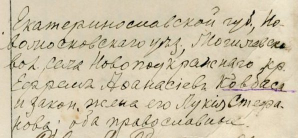 Екатеринославской губ, Но-
вомосковскаго уез, Могилевской
вол села Новоподкряжнаго кр
Ефраим Афанасіев Ковбаса
и закон. жена его Лукія Стефа-
нова; оба православные